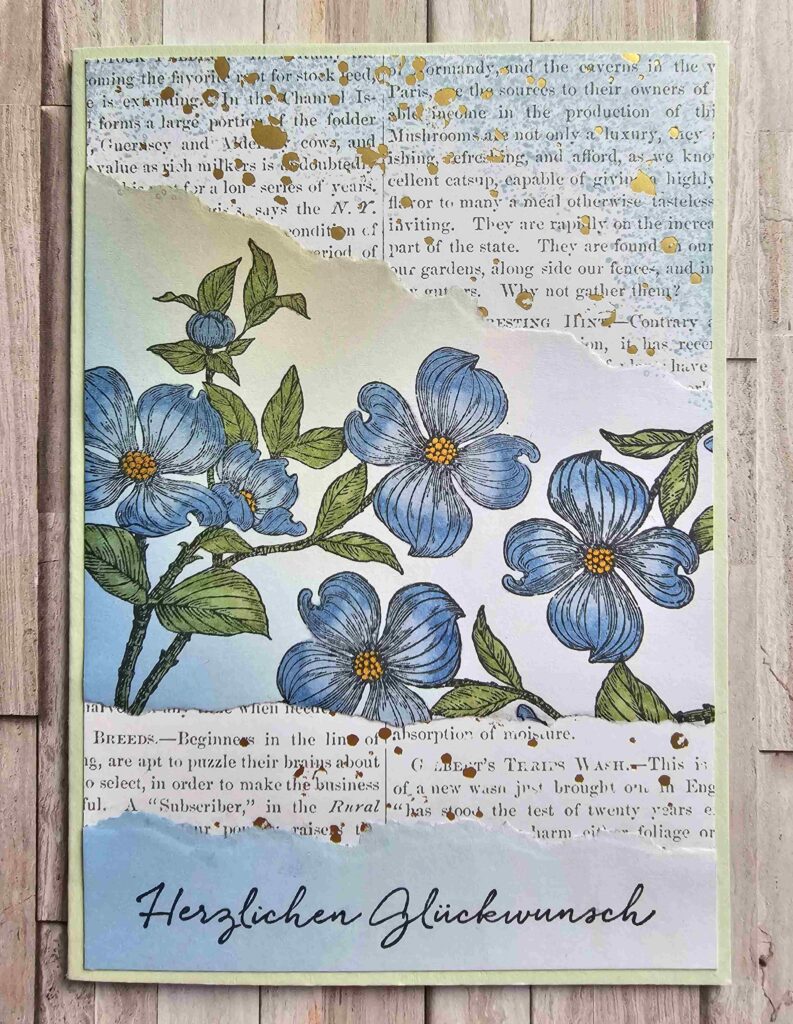 oming the favorite root for stock feed,
e is extending. In the Channel Is-
forms a large portion of the fodder
Guernsey and Alderney cows, and
value as rich milkers is undoubted.
for a long series of years.
says the N. Y.
condition of
period of
of Normandy, and the caverns in the
Paris, are the sources to their owners of
able income in the production of
Mushrooms are not only a luxury, they
ishing, refreshing, and afford, as we
cellent catsup, capable of giving highly
flavor to many a meal otherwise tasteless
inviting. They are rapidly on the
part of the state. They are found in our
our gardens, along side our fences, and in
gutters. Why not gather them?
ESTING HINT.—Contrary
it has
have
when
BREEDS.—Beginners in the line of
ng, are apt to puzzle their brains about
to select, in order to make the business
ful. A "Subscriber," in the Rural
raises
absorption of moisture.
WASH.—This is
of a new wash just brought out in
"has stood the test of twenty years
harm either foliage or
Herzlichen Glückwunsch